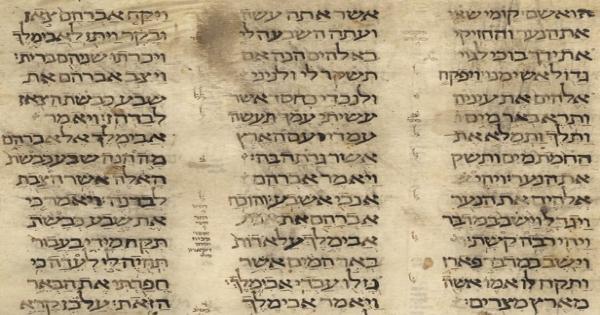 הוא שם קומי שאי
את הנער והחזיקי
את ידך בו כי לגוי
גדול אשימנו ויפקח
אלהים את עיניה
ותרא באר מים
ותלך ותמלא את
החמת מים ותשק
את הנער ויהי
אלהים את הנער
ויגדל וישב במדבר
ויהי רבה קשת
וישב במדבר פארן
ותקח לו אמו אשה
מארץ מצרים
אשר אתה עשה
ועתה השבעה לי
באלהים הנה אם
תשקר לי ולניני
ולנכדי כחסד אשר
עשיתי עמך תעשה
עמדי ועם הארץ
אשר גרתה בה
ויאמר אברהם
אנכי אשבע והוכח
אברהם את
אבימלך על אדות
באר המים אשר
גזלו עבדי אבימלך
ויאמר אבימלך
ויקח אברהם צאן
ובקר ויתן לאבימלך
ויכרתו שניהם ברית
ויצב אברהם את
שבע כבשת הצאן
לבדהן ויאמר
אבימלך אל אברהם
מה הנה שבע כבשת
האלה אשר הצבת
לבדנה ויאמר כי
את שבע כבשת
תקח מידי בעבור
תהיה לי לעדה כי
חפרתי את הבאר
הזאת על כן קרא